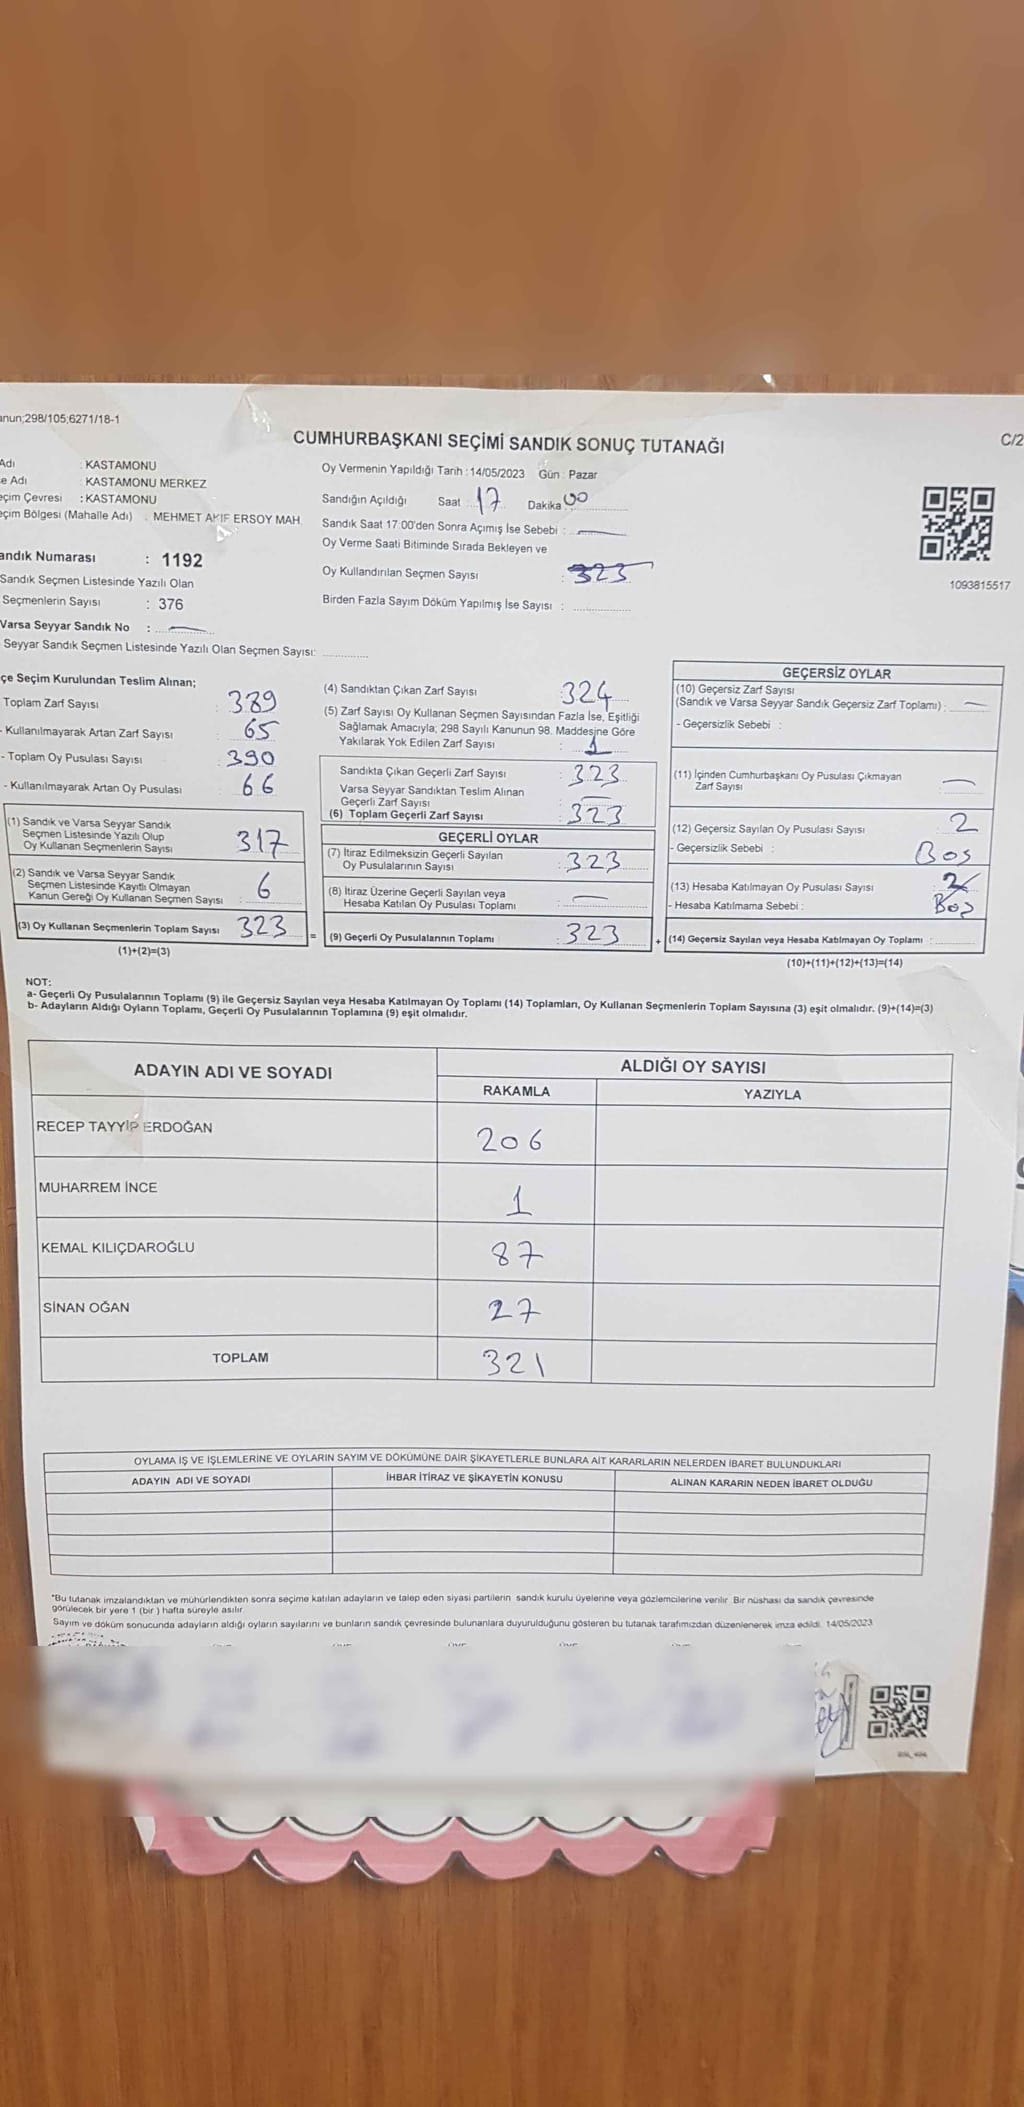 anun;298/105;6271/18-1
C/2
CUMHURBAŞKANI SEÇİMİ SANDIK SONUÇ TUTANAĞI
Adı : KASTAMONU
e Adı : KASTAMONU MERKEZ
eçim Çevresi : KASTAMONU
eçim Bölgesi (Mahalle Adı) : MEHMET AKİF ERSOY MAH.
andık Numarası : 1192
Sandık Seçmen Listesinde Yazılı Olan
Seçmenlerin Sayısı : 376
Varsa Seyyar Sandık No : —
Seyyar Sandık Seçmen Listesinde Yazılı Olan Seçmen Sayısı:
Oy Vermenin Yapıldığı Tarih : 14/05/2023 Gün : Pazar
Sandığın Açıldığı Saat : 17 Dakika 00
Sandık Saat 17:00'den Sonra Açımış İse Sebebi : —
Oy Verme Saati Bitiminde Sırada Bekleyen ve
Oy Kullandırılan Seçmen Sayısı : 323
Birden Fazla Sayım Döküm Yapılmış İse Sayısı :
1093815517
çe Seçim Kurulundan Teslim Alınan;
Toplam Zarf Sayısı : 389
- Kullanılmayarak Artan Zarf Sayısı : 65
- Toplam Oy Pusulası Sayısı : 390
- Kullanılmayarak Artan Oy Pusulası : 66
(1) Sandık ve Varsa Seyyar Sandık
Seçmen Listesinde Yazılı Olup
Oy Kullanan Seçmenlerin Sayısı : 317
(2) Sandık ve Varsa Seyyar Sandık
Seçmen Listesinde Kayıtlı Olmayan
Kanun Gereği Oy Kullanan Seçmen Sayısı : 6
(3) Oy Kullanan Seçmenlerin Toplam Sayısı : 323
(1)+(2)=(3)
(4) Sandıktan Çıkan Zarf Sayısı : 324
(5) Zarf Sayısı Oy Kullanan Seçmen Sayısından Fazla İse, Eşitliği
Sağlamak Amacıyla; 298 Sayılı Kanunun 98. Maddesine Göre
Yakılarak Yok Edilen Zarf Sayısı : 1
Sandıkta Çıkan Geçerli Zarf Sayısı : 323
Varsa Seyyar Sandıktan Teslim Alınan
Geçerli Zarf Sayısı : —
(6) Toplam Geçerli Zarf Sayısı : 323
GEÇERLİ OYLAR
(7) İtiraz Edilmeksizin Geçerli Sayılan
Oy Pusulalarının Sayısı : 323
(8) İtiraz Üzerine Geçerli Sayılan veya
Hesaba Katılan Oy Pusulası Toplamı : —
= (9) Geçerli Oy Pusulalarının Toplamı : 323
GEÇERSİZ OYLAR
(10) Geçersiz Zarf Sayısı
(Sandık ve Varsa Seyyar Sandık Geçersiz Zarf Toplamı) : —
- Geçersizlik Sebebi :
(11) İçinden Cumhurbaşkanı Oy Pusulası Çıkmayan
Zarf Sayısı : —
(12) Geçersiz Sayılan Oy Pusulası Sayısı : 2
- Geçersizlik Sebebi : Boş
(13) Hesaba Katılmayan Oy Pusulası Sayısı : 2
- Hesaba Katılmama Sebebi : Boş
+ (14) Geçersiz Sayılan veya Hesaba Katılmayan Oy Toplamı :
(10)+(11)+(12)+(13)=(14)
NOT:
a- Geçerli Oy Pusulalarının Toplamı (9) ile Geçersiz Sayılan veya Hesaba Katılmayan Oy Toplamı (14) Toplamları, Oy Kullanan Seçmenlerin Toplam Sayısına (3) eşit olmalıdır. (9)+(14)=(3)
b- Adayların Aldığı Oyların Toplamı, Geçerli Oy Pusulalarının Toplamına (9) eşit olmalıdır.
ADAYIN ADI VE SOYADI ALDIĞI OY SAYISI
RAKAMLA YAZIYLA
RECEP TAYYİP ERDOĞAN 206
MUHARREM İNCE 1
KEMAL KILIÇDAROĞLU 87
SİNAN OĞAN 27
TOPLAM 321
OYLAMA İŞ VE İŞLEMLERİNE VE OYLARIN SAYIM VE DÖKÜMÜNE DAİR ŞİKAYETLERLE BUNLARA AİT KARARLARIN NELERDEN İBARET BULUNDUKLARI
ADAYIN ADI VE SOYADI İHBAR İTİRAZ VE ŞİKAYETİN KONUSU ALINAN KARARIN NEDEN İBARET OLDUĞU
*Bu tutanak imzalandıktan ve mühürlendikten sonra seçime katılan adayların ve talep eden siyasi partilerin sandık kurulu üyelerine veya gözlemcilerine verilir. Bir nüshası da sandık çevresinde
görülecek bir yere 1 (bir ) hafta süreyle asılır.
Sayım ve döküm sonucunda adayların aldığı oyların sayılarını ve bunların sandık çevresinde bulunanlara duyurulduğunu gösteren bu tutanak tarafımızdan düzenlenerek imza edildi. 14/05/2023